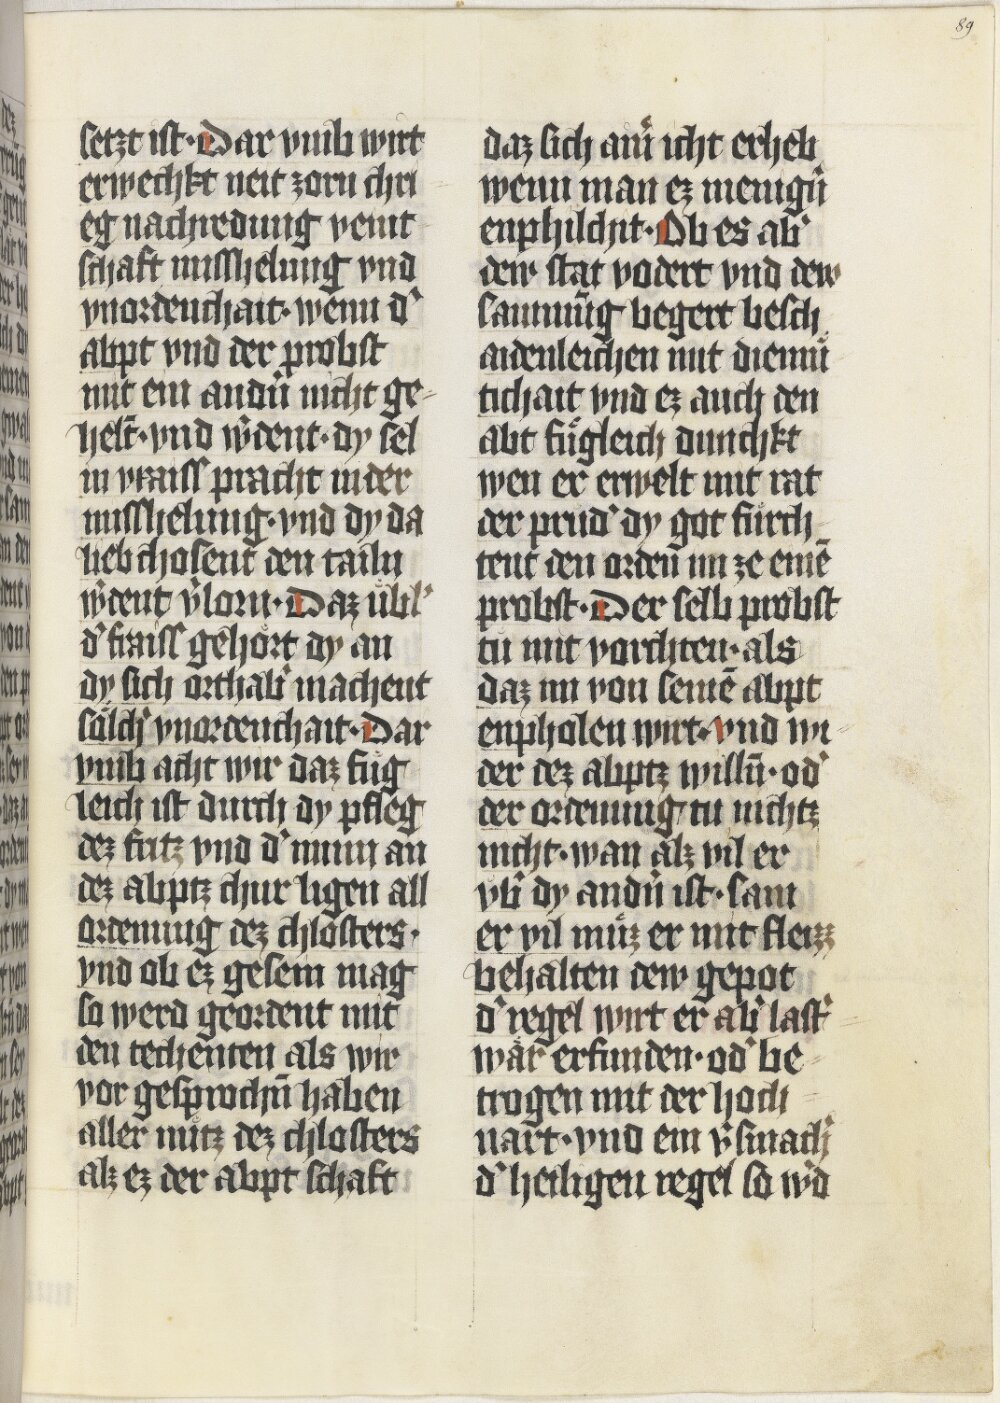 89
setzt ist · Dar vmb wirt
erwechkt neit zorn chri
eg nachredung veint
schaft misshelung vnd
vnordenchait · wenn d̾
abpt vnd der probst
mit ein andn̄ nicht ge-
helt̄ · vnd w̾dent · dy sel
in vraiss pracht in der
misshelung · vnd dy da
liebchosent den tailn
w̾dent v̾lorn · Daz übl̾
d̾ fraiss gehört dy an
dy sich orthab̾ machent
sölch̾ vnordenchait · Dar
vmb acht wir daz füg
leich ist durch dy pfleg
dez fritz vnd d̾ minn an
dez abptz chur ligen all
ordenung dez chlosters ·
vnd ob ez gesein mag
so werd geordent mit
den techenten als wir
vor gesprochn̄ haben
aller nütz dez chlosters
alz ez der abpt schaft
daz sich ain̾ icht erheb
wenn man ez menign̄
enphilcht · Ob es ab̾
dew stat vodert vnd dew
samnūg begert besch
aidenleichen mit diemü
tichait vnd ez auch den
abt fügleich dunchkt
wen er erwelt mit rat
der prud̾ dy got fürch
tent den ordn̄ im ze einē
probst · Der selb probst
tu mit vorchten · als
daz im von seinē abpt
enpholen wirt · vnd wi-
der dez abptz willn̄ · od̾
der ordenung tu nichtz
nicht · wan alz vil er
vb̾ dy andn̄ ist · sam
er vil müz er mit fleizz
behalten dew gepot
d̾ regel wirt er ab̾ last̾
wär erfunden · od̾ be-
trogen mit der hoch
uart · vnd ein v̾smach̾
d̾ heiligen regel so w̾d